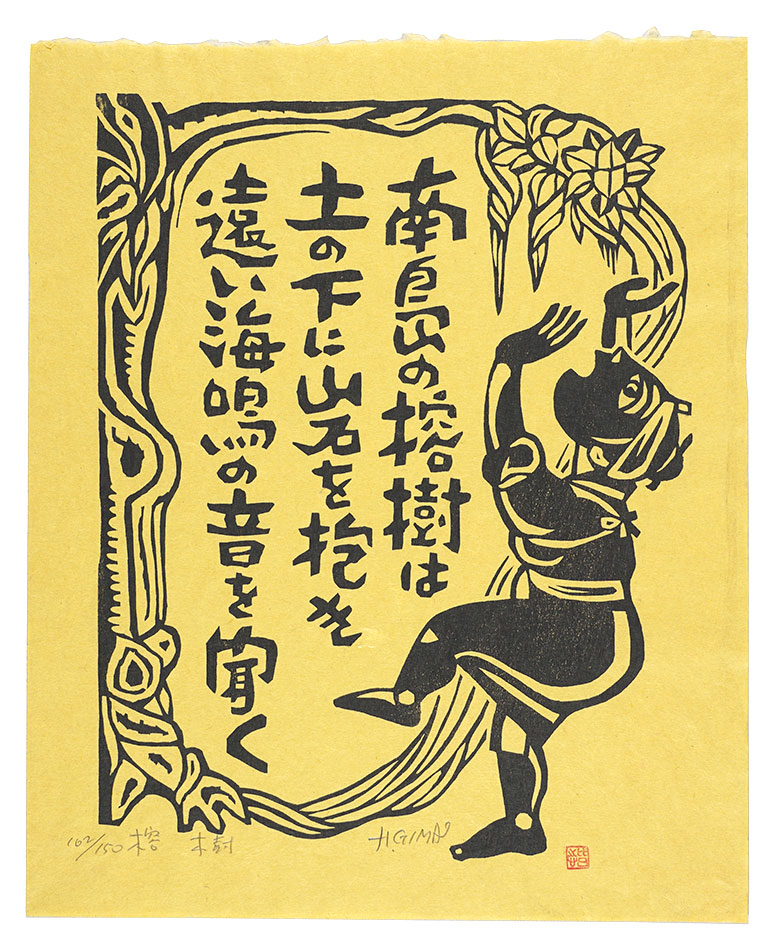 南島の榕樹は
土の下に山石を抱き
遠い海鳴の音を聞く
102/150 榕樹 H.GIMA